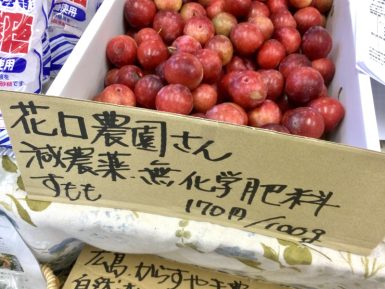 花口農園さん
減農薬 無化学肥料
すもも 170円/100g
使用
広島・わらすやま農
自然